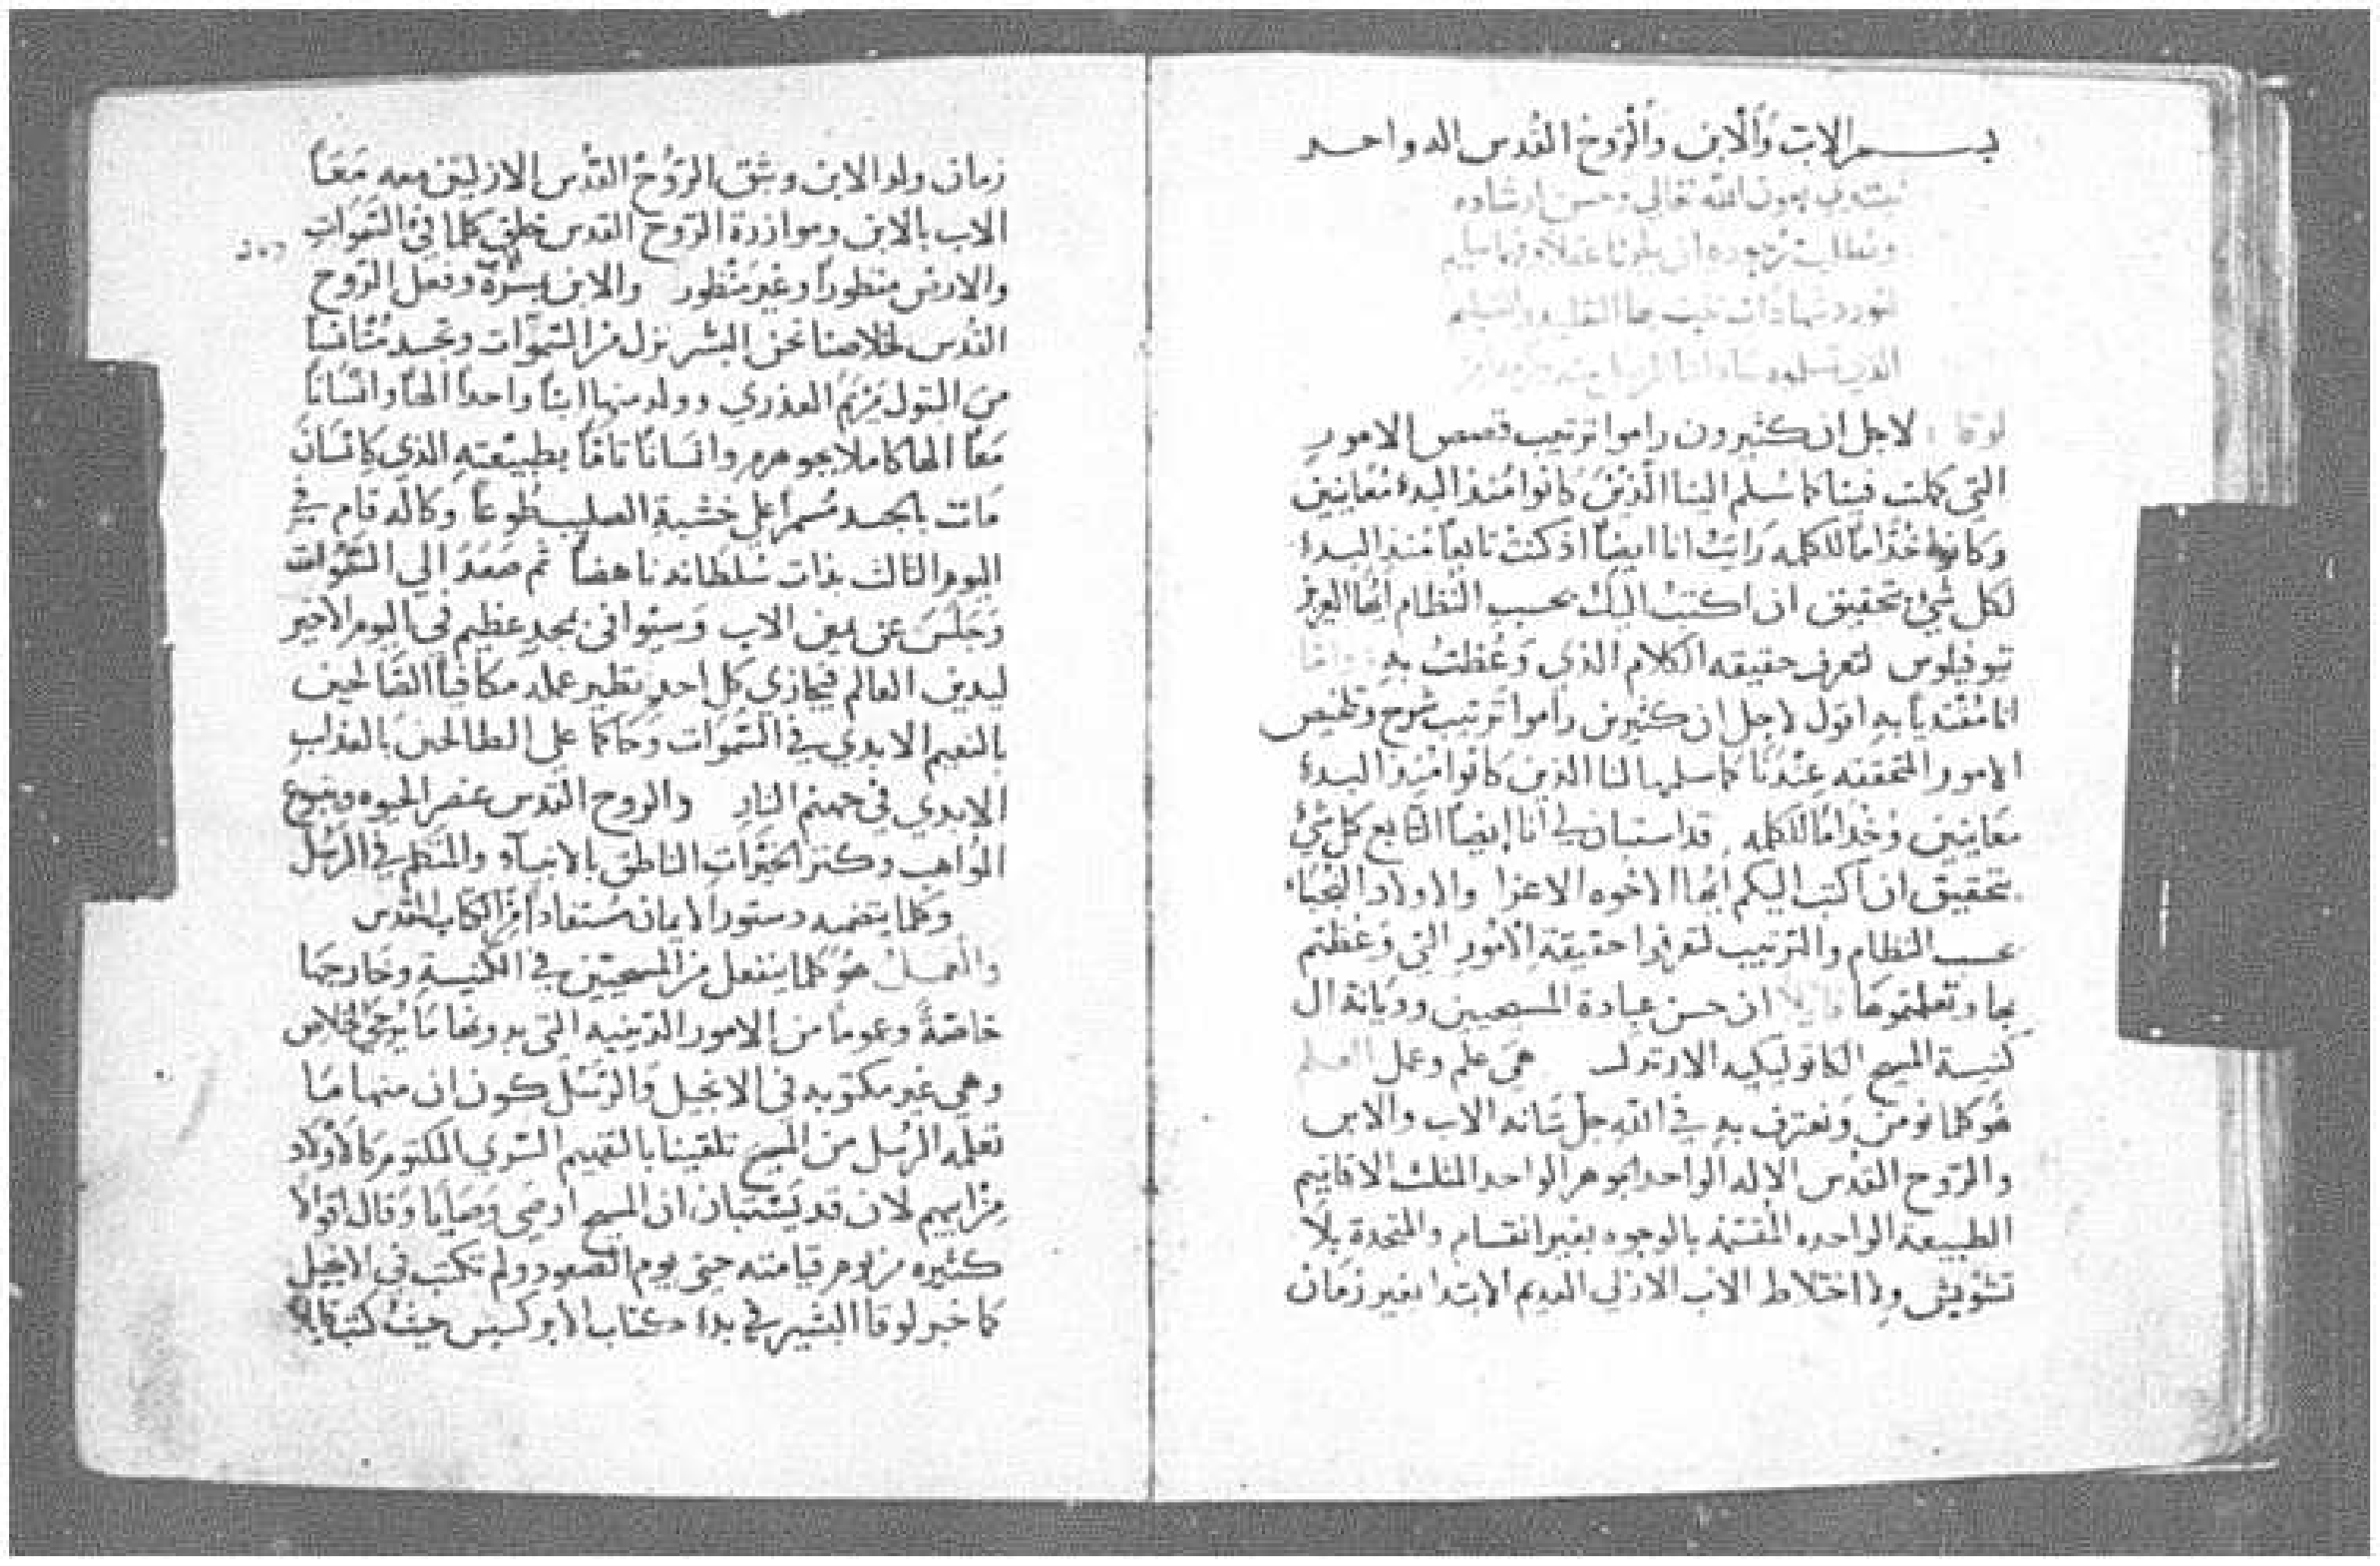 بسم الاب والابن والروح القدس اله واحد
نبتدي بعون الله تعالي وحسن ارشاده
ونطلب من جوده ان
لنورد شهادات
الذي
لوقا لاجل ان كثيرون راموا ترتيب قصص الامور
التي كملت فينا كما سلم الينا الذين كانوا منذ البدء معاينين
وكانوا خداماً للكلمه رايت انا ايضاً اذ كنت تابعاً منذ البدء
لكل شيء بتحقيق ان اكتب اليك بحسب النظام ايها العزيز
تيوفيلوس لتعرف حقيقه الكلام الذي وعظت به
انا مقتدياً به اقول لاجل ان كثيرين راموا ترتيب شرح وتلخيص
الامور المتحققه عندنا كما سلمها لنا الذين كانوا منذ البدء
معاينين وخداماً للكلمه قد استبان لي انا ايضاً التابع كل شيء
بتحقيق ان اكتب اليكم ايها الاخوه الاعزا والاولاد النجباء
بحسب النظام والترتيب لتعرفوا حقيقة الامور التي وعظتم
بها وتعلمتموها ان حسن عبادة المسيحيين وديانة ال
كنيسة المسيح الكاتوليكيه الارتدكس هي علم وعمل العلم
هو كلما نومن ونعترف به في الله جل شانه الاب والابن
والروح القدس الاله الواحد الجوهر الواحد المثلث الاقانيم
الطبيعة الواحده المقتسمه بالوجوه بغير انقسام والمتحدة بلا
تشويش ولا اختلاط الاب الازلي العديم الابتدا بغير زمان
زمان ولد الابن وبثق الروح القدس الازليين معه معاً
الاب بالابن وموازرة الروح القدس خلق كلما في السموات
والارض منظوراً وغير منظور والابن بمسرة وفعل الروح
القدس لخلاصنا نحن البشر نزل من السموات وتجسد متانساً
من البتول مريم العذري وولد منها ابناً واحداً الهاً وانساناً
معاً الها كاملا بجوهره وانساناً تاماً بطبيعته الذي كانسان
مات بالجسد مسمراً علي خشبة الصليب طوعاً وكاله قام في
اليوم الثالث بذات سلطانه ناهضاً ثم صعد الي السموات
وجلس عن يمين الاب وسيوافي بمجد عظيم في اليوم الاخير
ليدين العالم فيجازي كل احد نظير عمله مكافياً الصالحين
بالنعيم الابدي في السموات وحاكماً علي الطالحين بالعذاب
الابدي في جهنم النار والروح القدس عنصر الحيوه وينبوع
المواهب وكنز الخيرات الناطق بالانبياء والمتكلم في الرسل
وكلما يتضمنه دستور الايمان مستفاداً من الكتاب المقدس
والعمل هو كلما ينفعل من المسيحيين في الكنيسة وخارجها
خاصةً وعموماً من الامور الدينيه التي بدونها ما يرجى الخلاص
وهي غير مكتوبه في الانجيل والرسل كون ان منها ما
تعلمه الرسل من المسيح تلقيناً بالتفهيم السري المكتوم كالاولاد
من ابيهم لان قد يستبان ان المسيح اوصى وصايا وقال اقوالا
كثيره من يوم قيامته حتي يوم الصعود ولم تكتب في الانجيل
كما خبر لوقا البشير في بدء كتاب الابركسيس حيث كتب